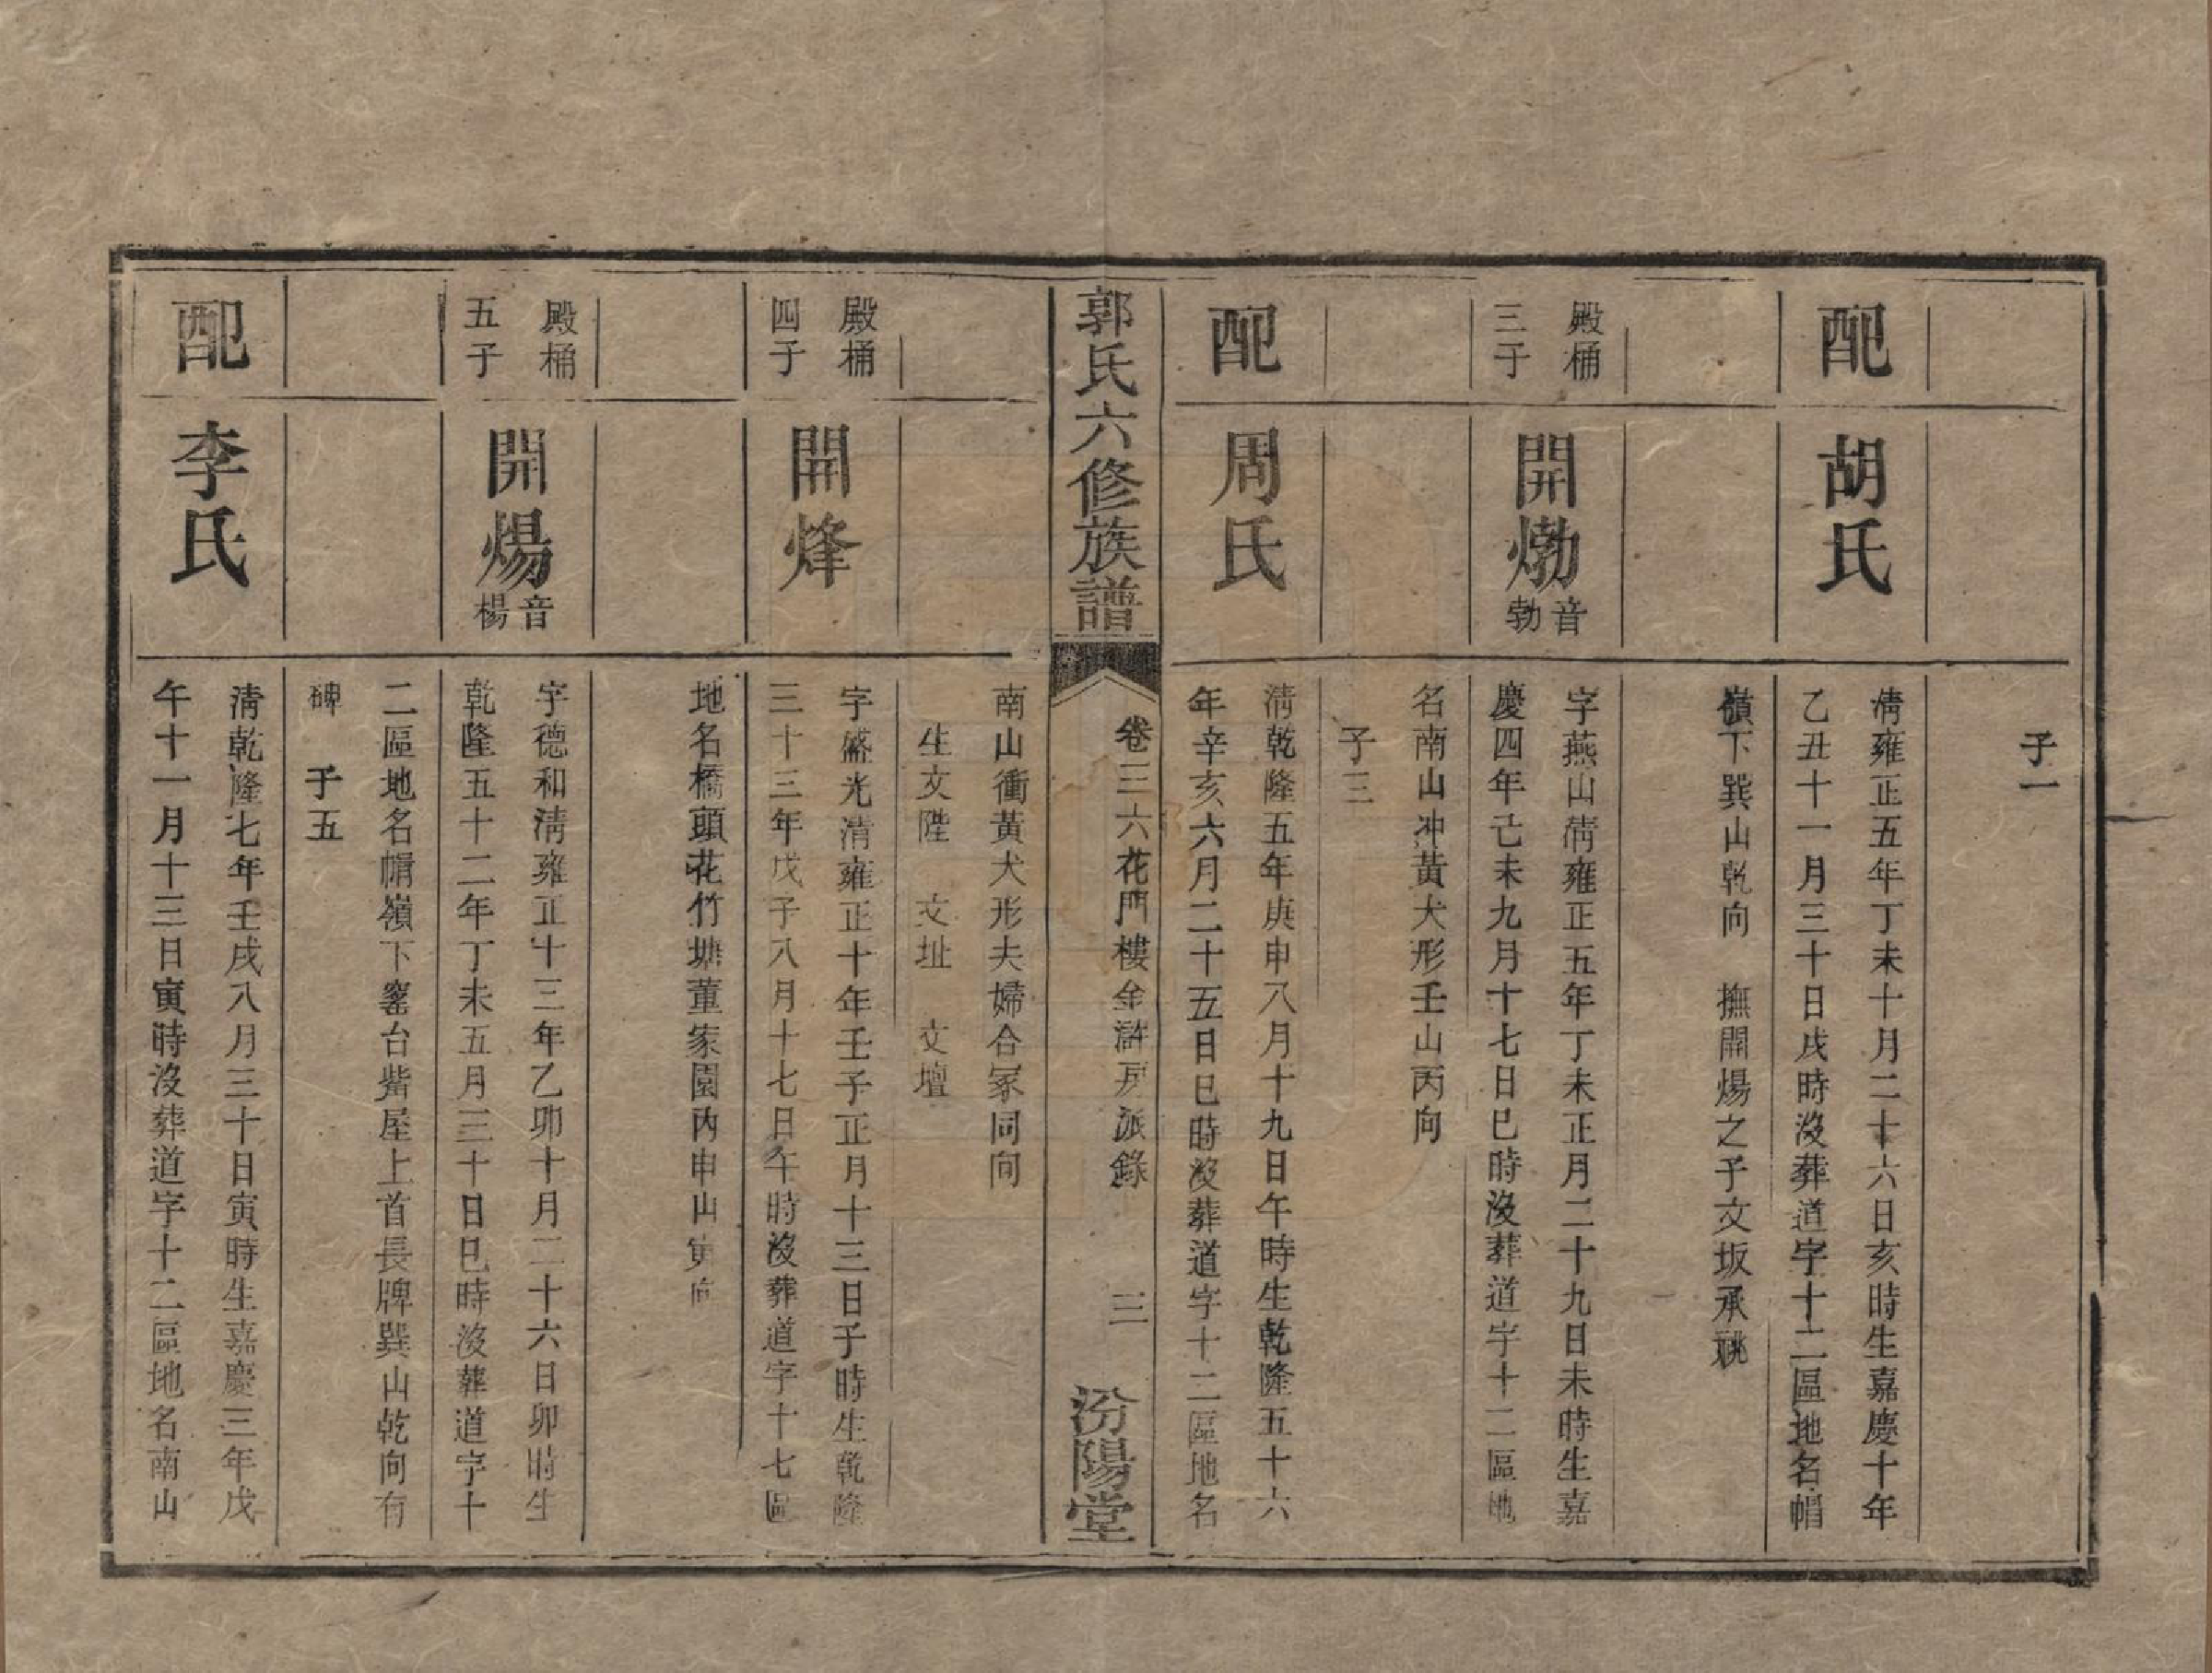 子一
配
胡氏
清雍正五年丁未十月二十六日亥時生嘉慶十年
乙丑十一月三十日戌時沒葬道字十二區地名帽
嶺下巽山乾向　撫開煬之子文坂承祧
殿桶
三子
開㶿
音
勃
字燕山清雍正五年丁未正月二十九日未時生嘉
慶四年己未九月十七日巳時沒葬道字十二區地
名南山冲黃犬形壬山丙向
子三
配
周氏
清乾隆五年庚申八月十九日午時生乾隆五十六
年辛亥六月二十五日巳時沒葬道字十二區地名
郭氏六修族譜
卷三六花門樓金滸房派錄
三
汾陽堂
南山衝黃犬形夫婦合冢同向
生文陞　文址　文壇
殿桶
四子
開烽
字盛光清雍正十年壬子正月十三日子時生乾隆
三十三年戊子八月十七日午時沒葬道字十七區
地名橋頭花竹塘董家園內申山寅向
殿桶
五子
開煬
音
楊
字德和清雍正十三年乙卯十月二十六日卯時生
乾隆五十二年丁未五月三十日巳時沒葬道字十
二區地名帽嶺下窰台觜屋上首長牌巽山乾向有
碑　子五
配
李氏
清乾隆七年壬戌八月三十日寅時生嘉慶三年戊
午十一月十三日寅時沒葬道字十二區地名南山